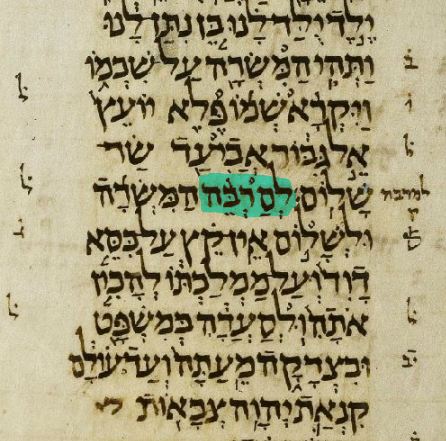 יֶלֶד יֻלַּד לָנוּ בֵּן נִתַּן לָנוּ
וַתְּהִי הַמִּשְׂרָה עַל שִׁכְמוֹ
וַיִּקְרָא שְׁמוֹ פֶּלֶא יוֹעֵץ
אֵל גִּבּוֹר אֲבִי עַד שַׂר
שָׁלוֹם׃ לְםַרְבֵּה הַמִּשְׂרָה למרבה ק
וּלְשָׁלוֹם אֵין קֵץ עַל כִּסֵּא
דָוִד וְעַל מַמְלַכְתּוֹ לְהָכִין
אֹתָהּ וּלְסַעֲדָהּ בְּמִשְׁפָּט
וּבִצְדָקָה מֵעַתָּה וְעַד עוֹלָם
קִנְאַת יְהוָה צְבָאוֹת